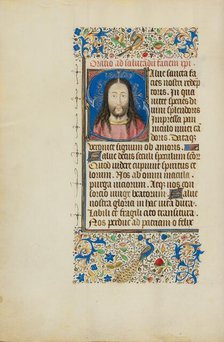 Oratio ad salutandā faciem xpi.
Salue sancta fa
cies nostri redēp
toris. In qua
nitet spēties di
uini splendoris
Impressa pan
niculo niuei ca
doris. Dataqz
veronice signum ob amoris.
Salue decus seculi speculum sāctor
Quod videre cupiunt spiritus ce
lorum. Nos ab omni macula
purga vitiorum. Atqz nos con
sortio iunge beatorum. Salue
nostra gloria in hac vita dura.
Labili et fragili cito transitura.
Nos perduc ad patriam o felix